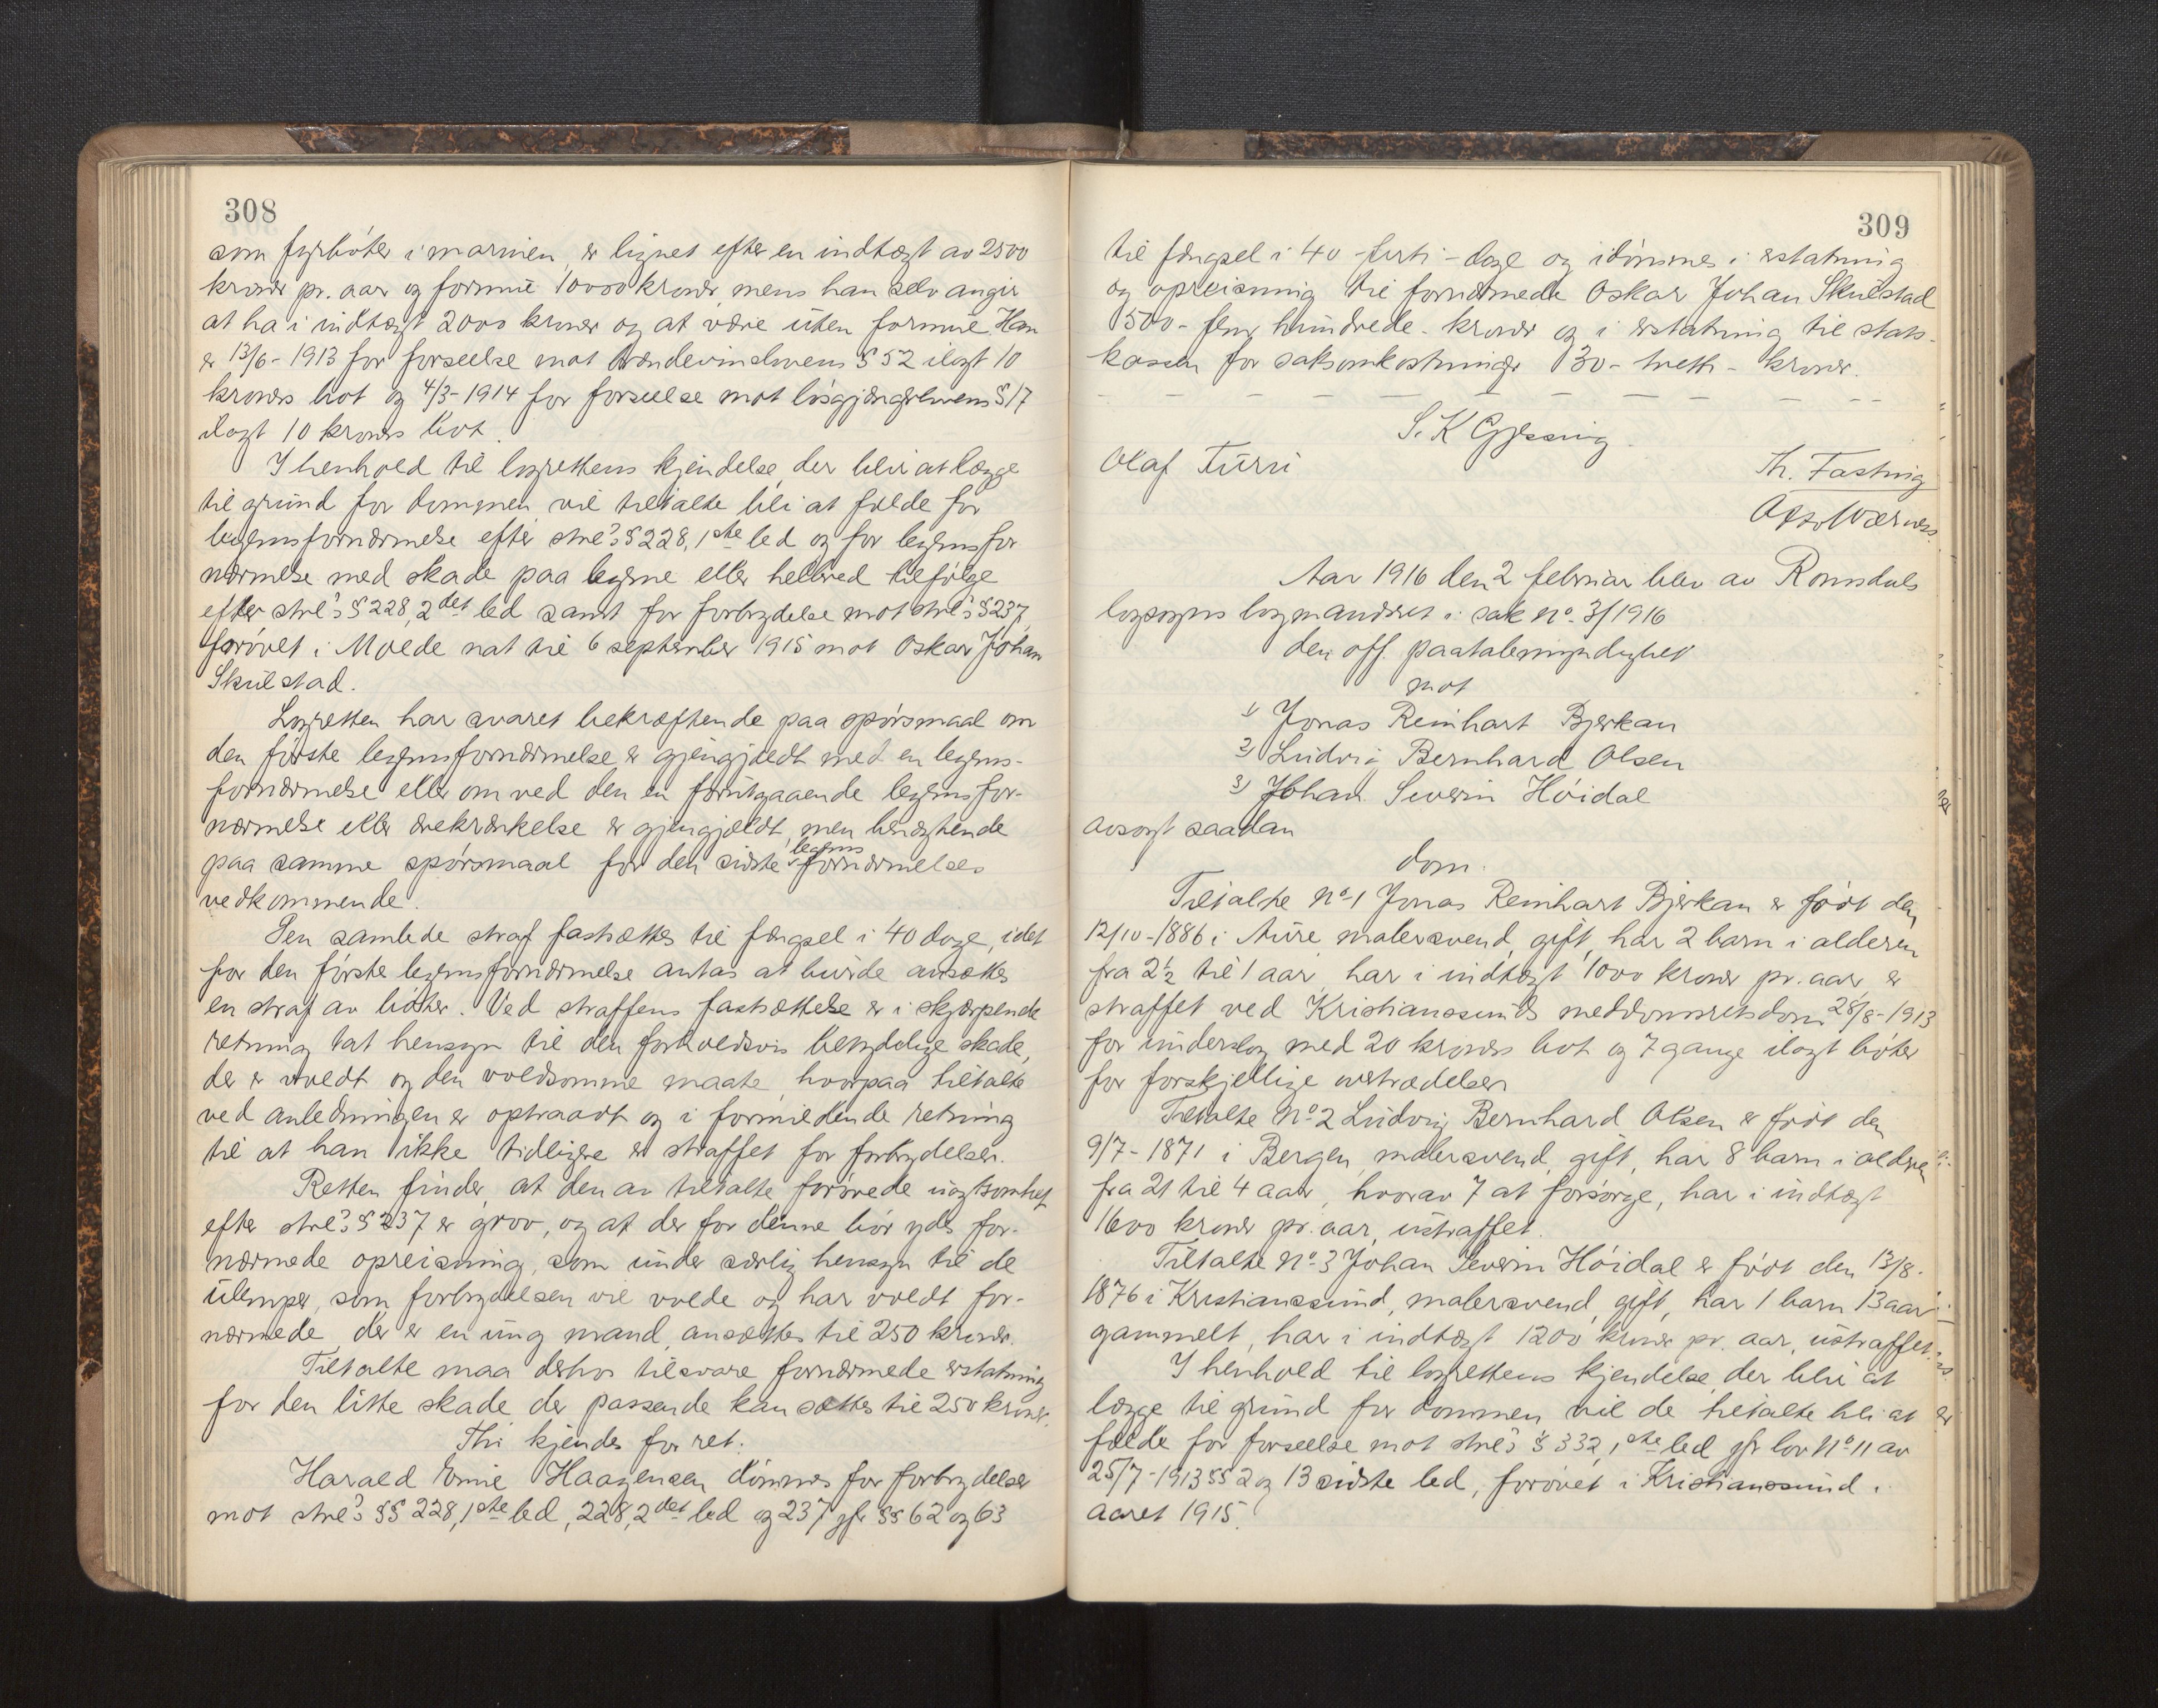 308
som fyrbøter i marinen, er lignet efter en indtægt av 2500
kroner pr. aar og formue 10000 kroner, mens han selv angir
at ha i indtægt 2000 kroner og at være uten formue. Han
er 13/6-1913 for forseelse mot brændevinslovens § 52 ilagt 10
kroners bot og 4/3-1914 for forseelse mot løsgjængerlovens § 17
ilagt 10 kroners bot.
I henhold til lagrettens kjendelse, der blir at lægge
til grund for dommen vil tiltalte bli at fælde for
legemsfornærmelse efter strl's § 228, 1ste led og for legemsfor
nærmelse med skade paa legeme eller helbred tilfølge
efter strl's § 228, 2det led samt for forbrydelse mot strl's § 237,
forøvet i Molde nat til 6 september 1915 mot Oskar Johan
Skulstad.
Lagretten har svaret bekræftende paa spørsmaal om
den første legemsfornærmelse er gjengjældt med en legems-
fornærmelse eller om ved den en forutgaaende legemsfor-
nærmelse eller ærekrænkelse er gjengjældt, men benægtende
paa samme spørsmaal for den sidste legemsfornærmelses
vedkommende.
Den samlede straf fastsættes til fængsel i 40 dage, idet
for den første legemsfornærmelse antas at burde ansættes
en straf av bøter. Ved straffens fastsættelse er i skjærpende
retning tat hensyn til den forholdsvis betydelige skade,
der er voldt og den voldsomme maate, hvorpaa tiltalte
ved anledningen er optraadt og i formildende retning
til at han ikke tidligere er straffet for forbrydelser.
Retten finder, at den av tiltalte forøvede uagtsomhet
efter strl's § 237 er grov, og at der for denne bør ydes for-
nærmede opreisning, som under særlig hensyn til de
ulemper, som forbrydelsen vil volde og har voldt for-
nærmede, der er en ung mand, ansættes til 250 kroner.
Tiltalte maa derhos tilsvare fornærmede erstatning
for den litte skade, der passende kan sættes til 250 kroner.
Thi kjendes for ret:
Harald Emil Haagensen dømmes for forbrydelse
mot strl's §§ 228, 1ste led, 228, 2det led og 237 jfr §§ 62 og 63
309
til fængsel i 40 -firti- dage og idømmes i erstatning
og opreisning til fornærmede Oskar Johan Skulstad
500- fem hundrede- kroner og i erstatning til stats-
kassen for saksomkostninger 30- tretti- kroner.
S. K Gjessing.
Olaf Turri
Th. Fastnig
Aar 1916 den 2 februar blev av Romsdals
lagsogns lagmandsret i sak No. 3/1916
den off. paatalemyndighet
mot
1) Jonas Reinhart Bjerkan
2) Ludvig Bernhard Olsen
3) Johan Severin Høidal
avsagt saadan
dom.
Tiltalte No. 1 Jonas Reinhart Bjerkan er født den
12/10-1886 i Aure, malersvend, gift, har 2 barn i alderen
fra 2½ til 1 aar, har i indtægt 1000 kroner pr. aar, er
straffet ved Kristianssunds meddomsretsdom 28/8-1913
for underslag med 20 kroners bot og 7 gange ilagt bøter
for forskjellige overtrædelser.
Tiltalte No. 2 Ludvig Bernhard Olsen er født den
9/7-1871 i Bergen, malersvend, gift, har 8 barn i alderen
fra 21 til 4 aar, hvorav 7 at forsørge, har i indtægt
1600 kroner pr. aar, ustraffet.
Tiltalte No. 3 Johan Severin Høidal er født den 13/8-
1876 i Kristianssund, malersvend, gift, har 1 barn 13 aar
gammelt, har i indtægt 1200 kroner pr. aar, ustraffet.
I henhold til lagrettens kjendelse, der blir at
lægge til grund for dommen vil de tiltalte bli at
fælde for forseelse mot strl's § 332, 1ste led jfr lov No. 11 av
25/7-1913 §§ 2 og 13 sidste led, forøvet i Kristianssund i
aaret 1915.